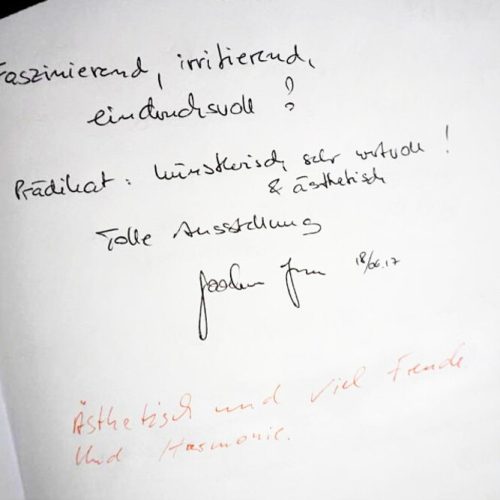 Faszinierend, irritierend,
eindrucksvoll!
Prädikat: künstlerisch sehr wertvoll!
& ästhetisch
Tolle Ausstellung
18/06.17
Ästhetisch und viel Freude
Und Harmonie.